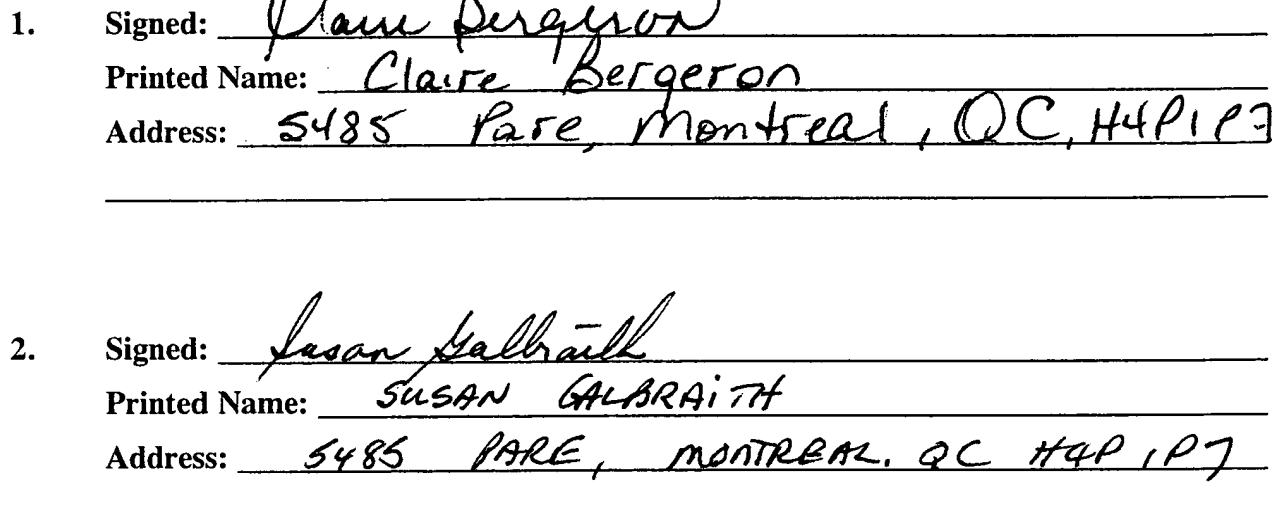 1. Signed: Claire Bergeron
Printed Name: Claire Bergeron
Address: 5485 Pare, Montreal, QC, H4P1P7
2. Signed: Susan Galbraith
Printed Name: SUSAN GALBRAiTH
Address: 5485 PARE, MONTREAL. QC H4P 1P7